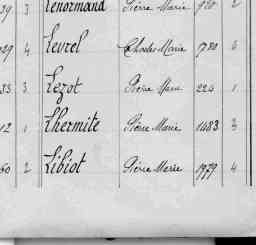 39 3 Lenormand Pierre Marie 920 2
029 4 Levrel Charles Marie 1780 6
83 3 Lezot Pierre Marie 224 1
12 1 Lhermite Pierre Marie 1483 3
60 2 Libiot Pierre Marie 1979 4